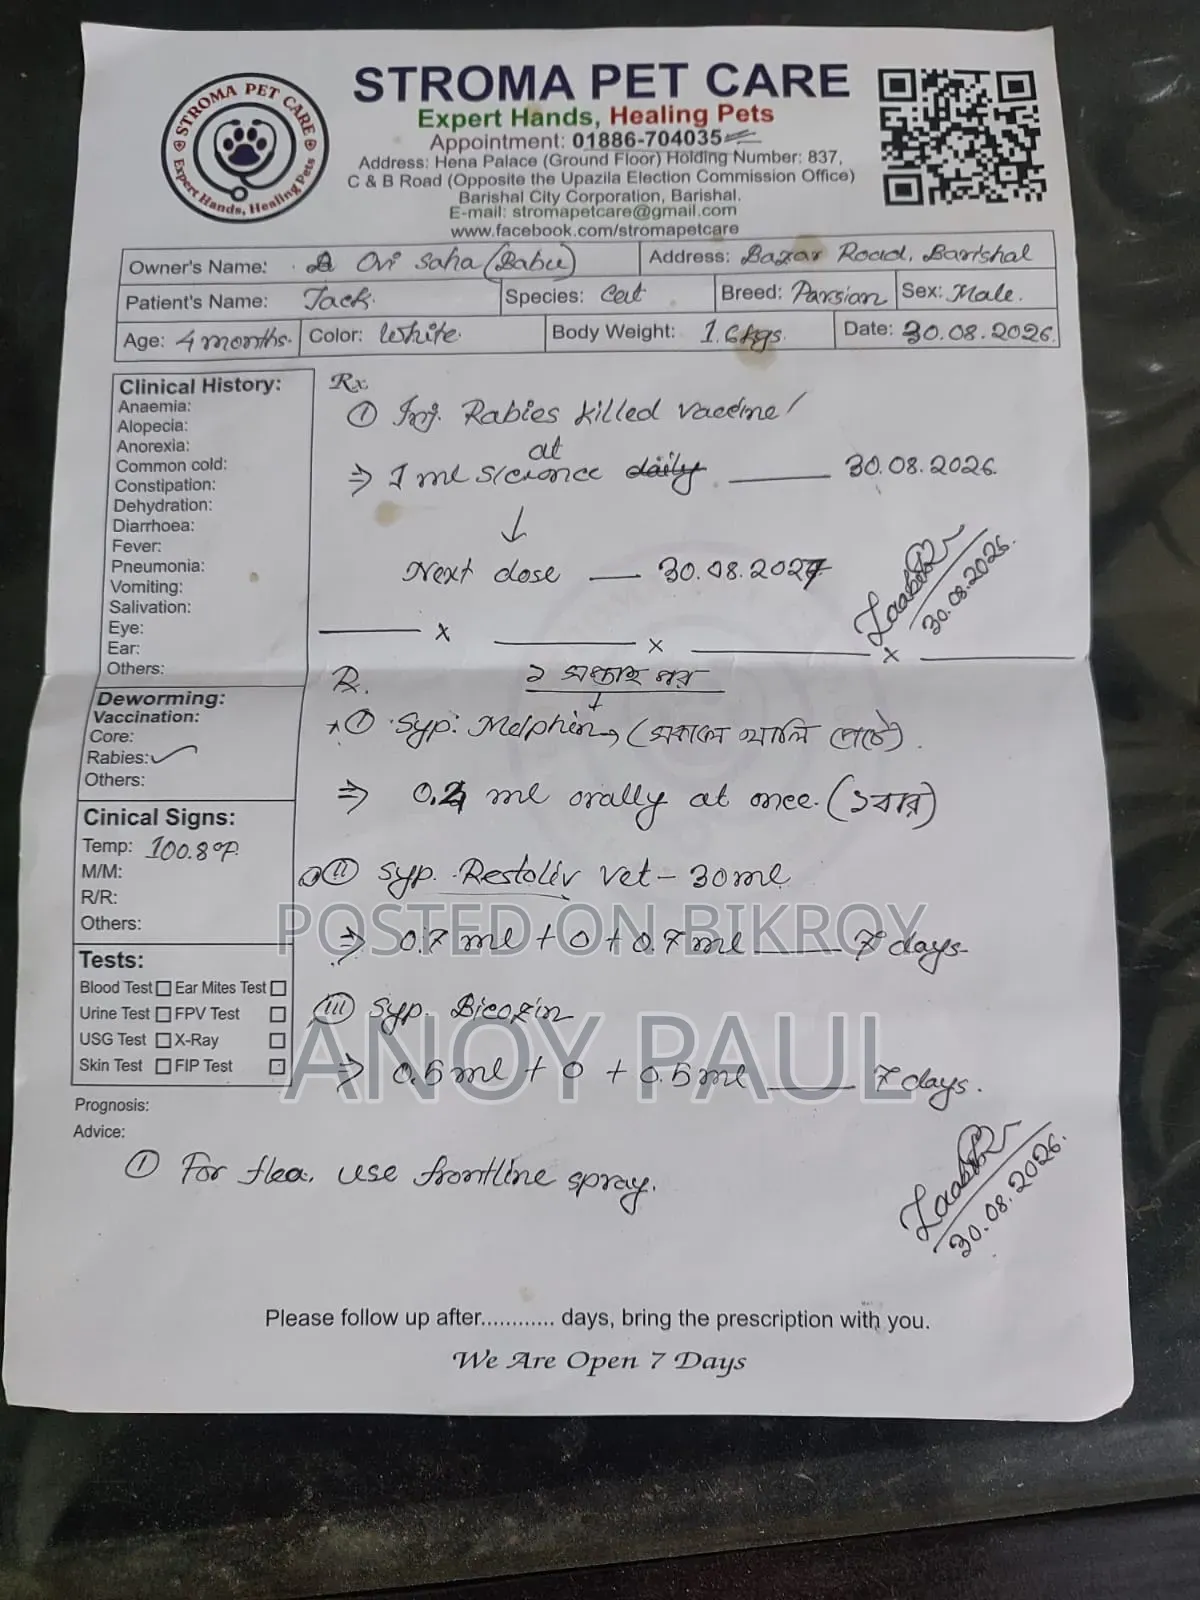 STROMA PET CARE
Expert Hands, Healing Pets
Appointment: 01886-704035
Address: Hena Palace (Ground Floor) Holding Number: 837,
C & B Road (Opposite the Upazila Election Commission Office)
Barishal City Corporation, Barishal.
E-mail: stromapetcare@gmail.com
www.facebook.com/stromapetcare
STROMA PET CARE
Expert Hands, Healing Pets
Owner's Name: Ovi Saha (Babu) Address: Bazar Road, Barishal
Patient's Name: Jack. Species: Cat Breed: Parsian Sex: Male.
Age: 4 months. Color: White. Body Weight: 1.6kgs. Date: 30.08.2026.
Clinical History:
Anaemia:
Alopecia:
Anorexia:
Common cold:
Constipation:
Dehydration:
Diarrhoea:
Fever:
Pneumonia:
Vomiting:
Salivation:
Eye:
Ear:
Others:
Deworming:
Vaccination:
Core:
Rabies: ✓
Others:
Cinical Signs:
Temp: 100.8°F.
M/M:
R/R:
Others:
Tests:
Blood Test Ear Mites Test
Urine Test FPV Test
USG Test X-Ray
Skin Test FIP Test
Prognosis:
Advice:
Rx
① Inj. Rabies killed vaccine
at
⇒ 1 ml s/c once daily —— 30.08.2026.
↓
Next dose — 30.08.2027
30.08.2026.
—— x —— x —— x ——
Rx. ১ সপ্তাহ পর
① Syp: Melphin → (সকালে খালি পেটে).
⇒ 0.4 ml orally at once. (১বার)
ii Syp. Restoliv vet - 30ml
⇒ 0.7 ml + 0 + 0.7 ml —— 7 days
iii Syp. Bicozin
⇒ 0.5 ml + 0 + 0.5 ml —— 7 days.
① For flea, use frontline spray.
30.08.2026.
Please follow up after............ days, bring the prescription with you.
We Are Open 7 Days
POSTED ON BIKROY
ANOY PAUL